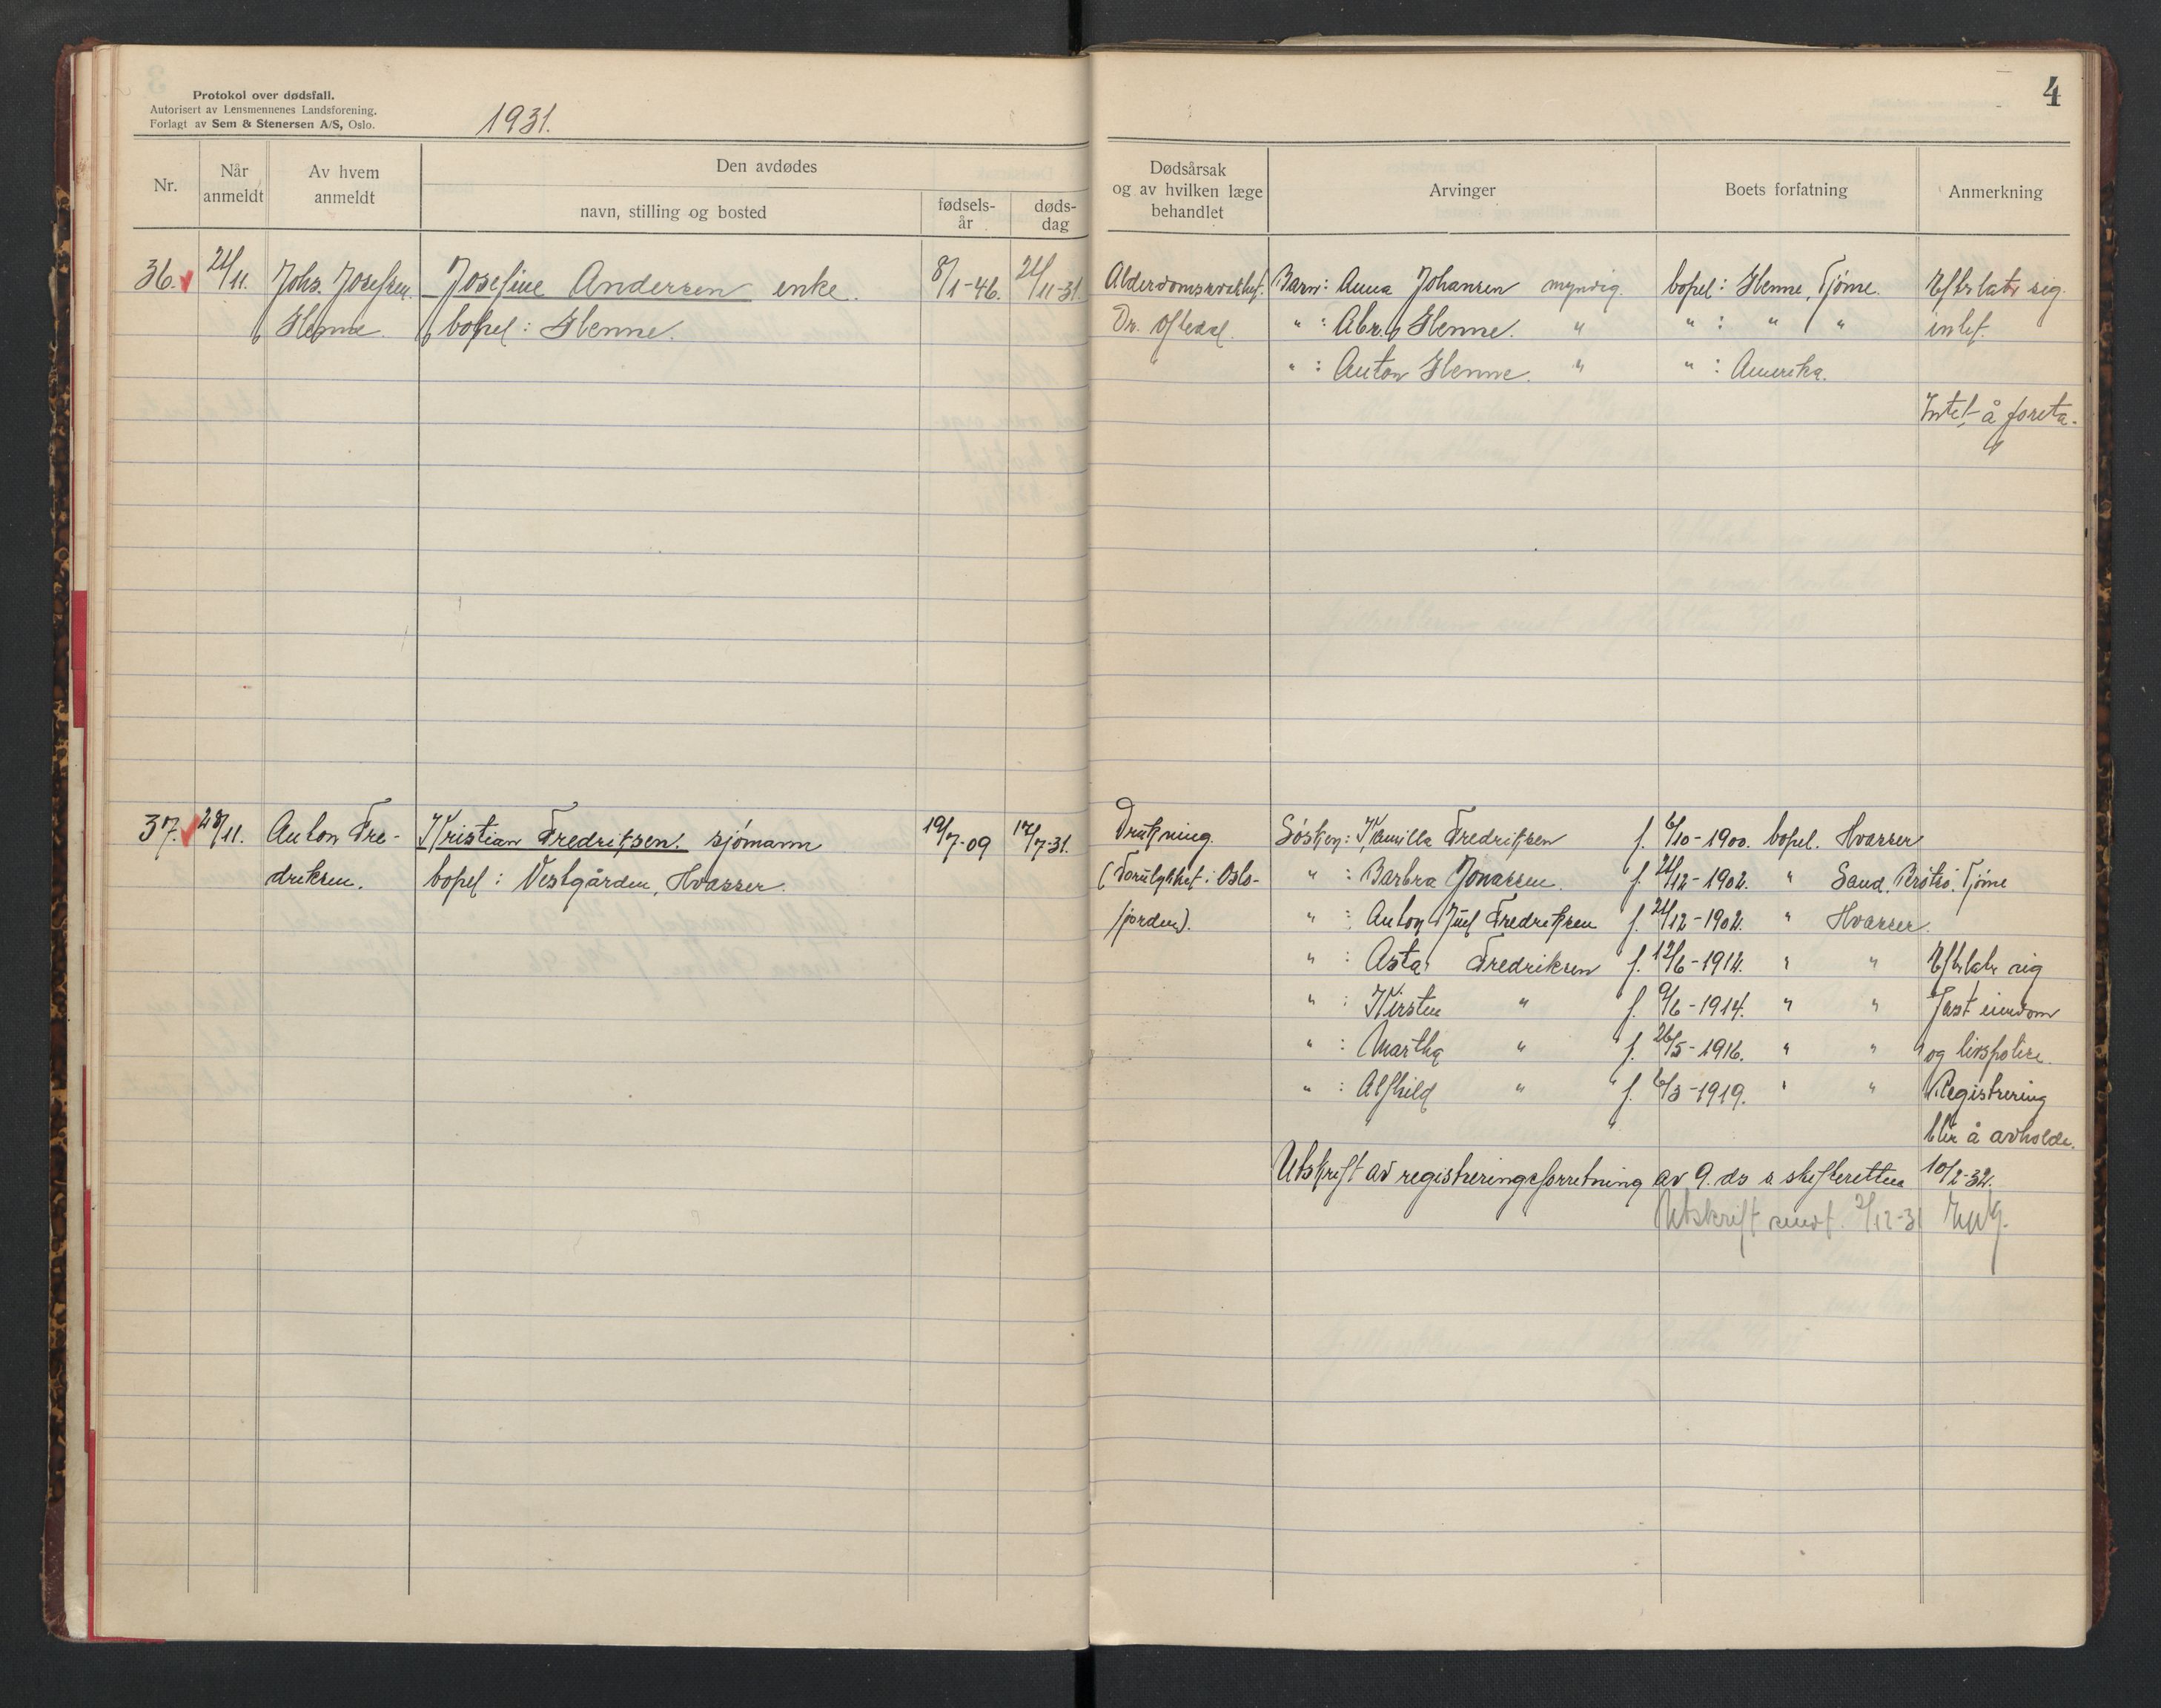 Protokol over dødsfall.
Autorisert av Lensmennenes Landsforening.
Forlagt av Sem & Stenersen A/S, Oslo.
1931.
4
Nr.
Når anmeldt
Av hvem anmeldt
Den avdødes
navn, stilling og bosted
fødsels-år
døds-dag
Dødsårsak og av hvilken læge behandlet
Arvinger
Boets forfatning
Anmerkning
36. 24/11. Johs. Josefsen. Josefine Andersen enke. 8/1-46. 24/11-31. Alderdomssvakhet. Barn: Anna Johansen myndig. bopel: Glenne, Tjøme. Efterlater sig
Glenne. bopel: Glenne. Dr. Oftedal. " : Abr. Glenne. " " : " " intet.
" : Anton Glenne. " " : Amerika.
Intet å foreta.
37. 28/11. Anton Fre- Kristian Fredriksen. sjømann 19/7-09 12/7-31. Drukning. Søsken: Kamilla Fredriksen f. 6/10-1900. bopel. Hvasser
driksen. bopel: Vestgården, Hvasser. (Forulykket i Oslo- " : Barbra Jonassen. f. 24/12-1902. " Sand, Tjøme
fjorden). " : Anton Juel Fredriksen f. 24/12-1902. " Hvasser.
" : Asta Fredriksen f. 12/6-1912. " " Efterlater sig
" : Kirsten " f. 9/6-1914. " " fast eiendom
" : Martha " f. 26/5-1916. " " og livspolise.
" : Alfhild " f. 6/3-1919. " " Registrering
blir å avholde.
Utskrift av registreringsforretning av 9. ds s. skifteretten 10/2-32.
Utskrift sendt. 2/12-31